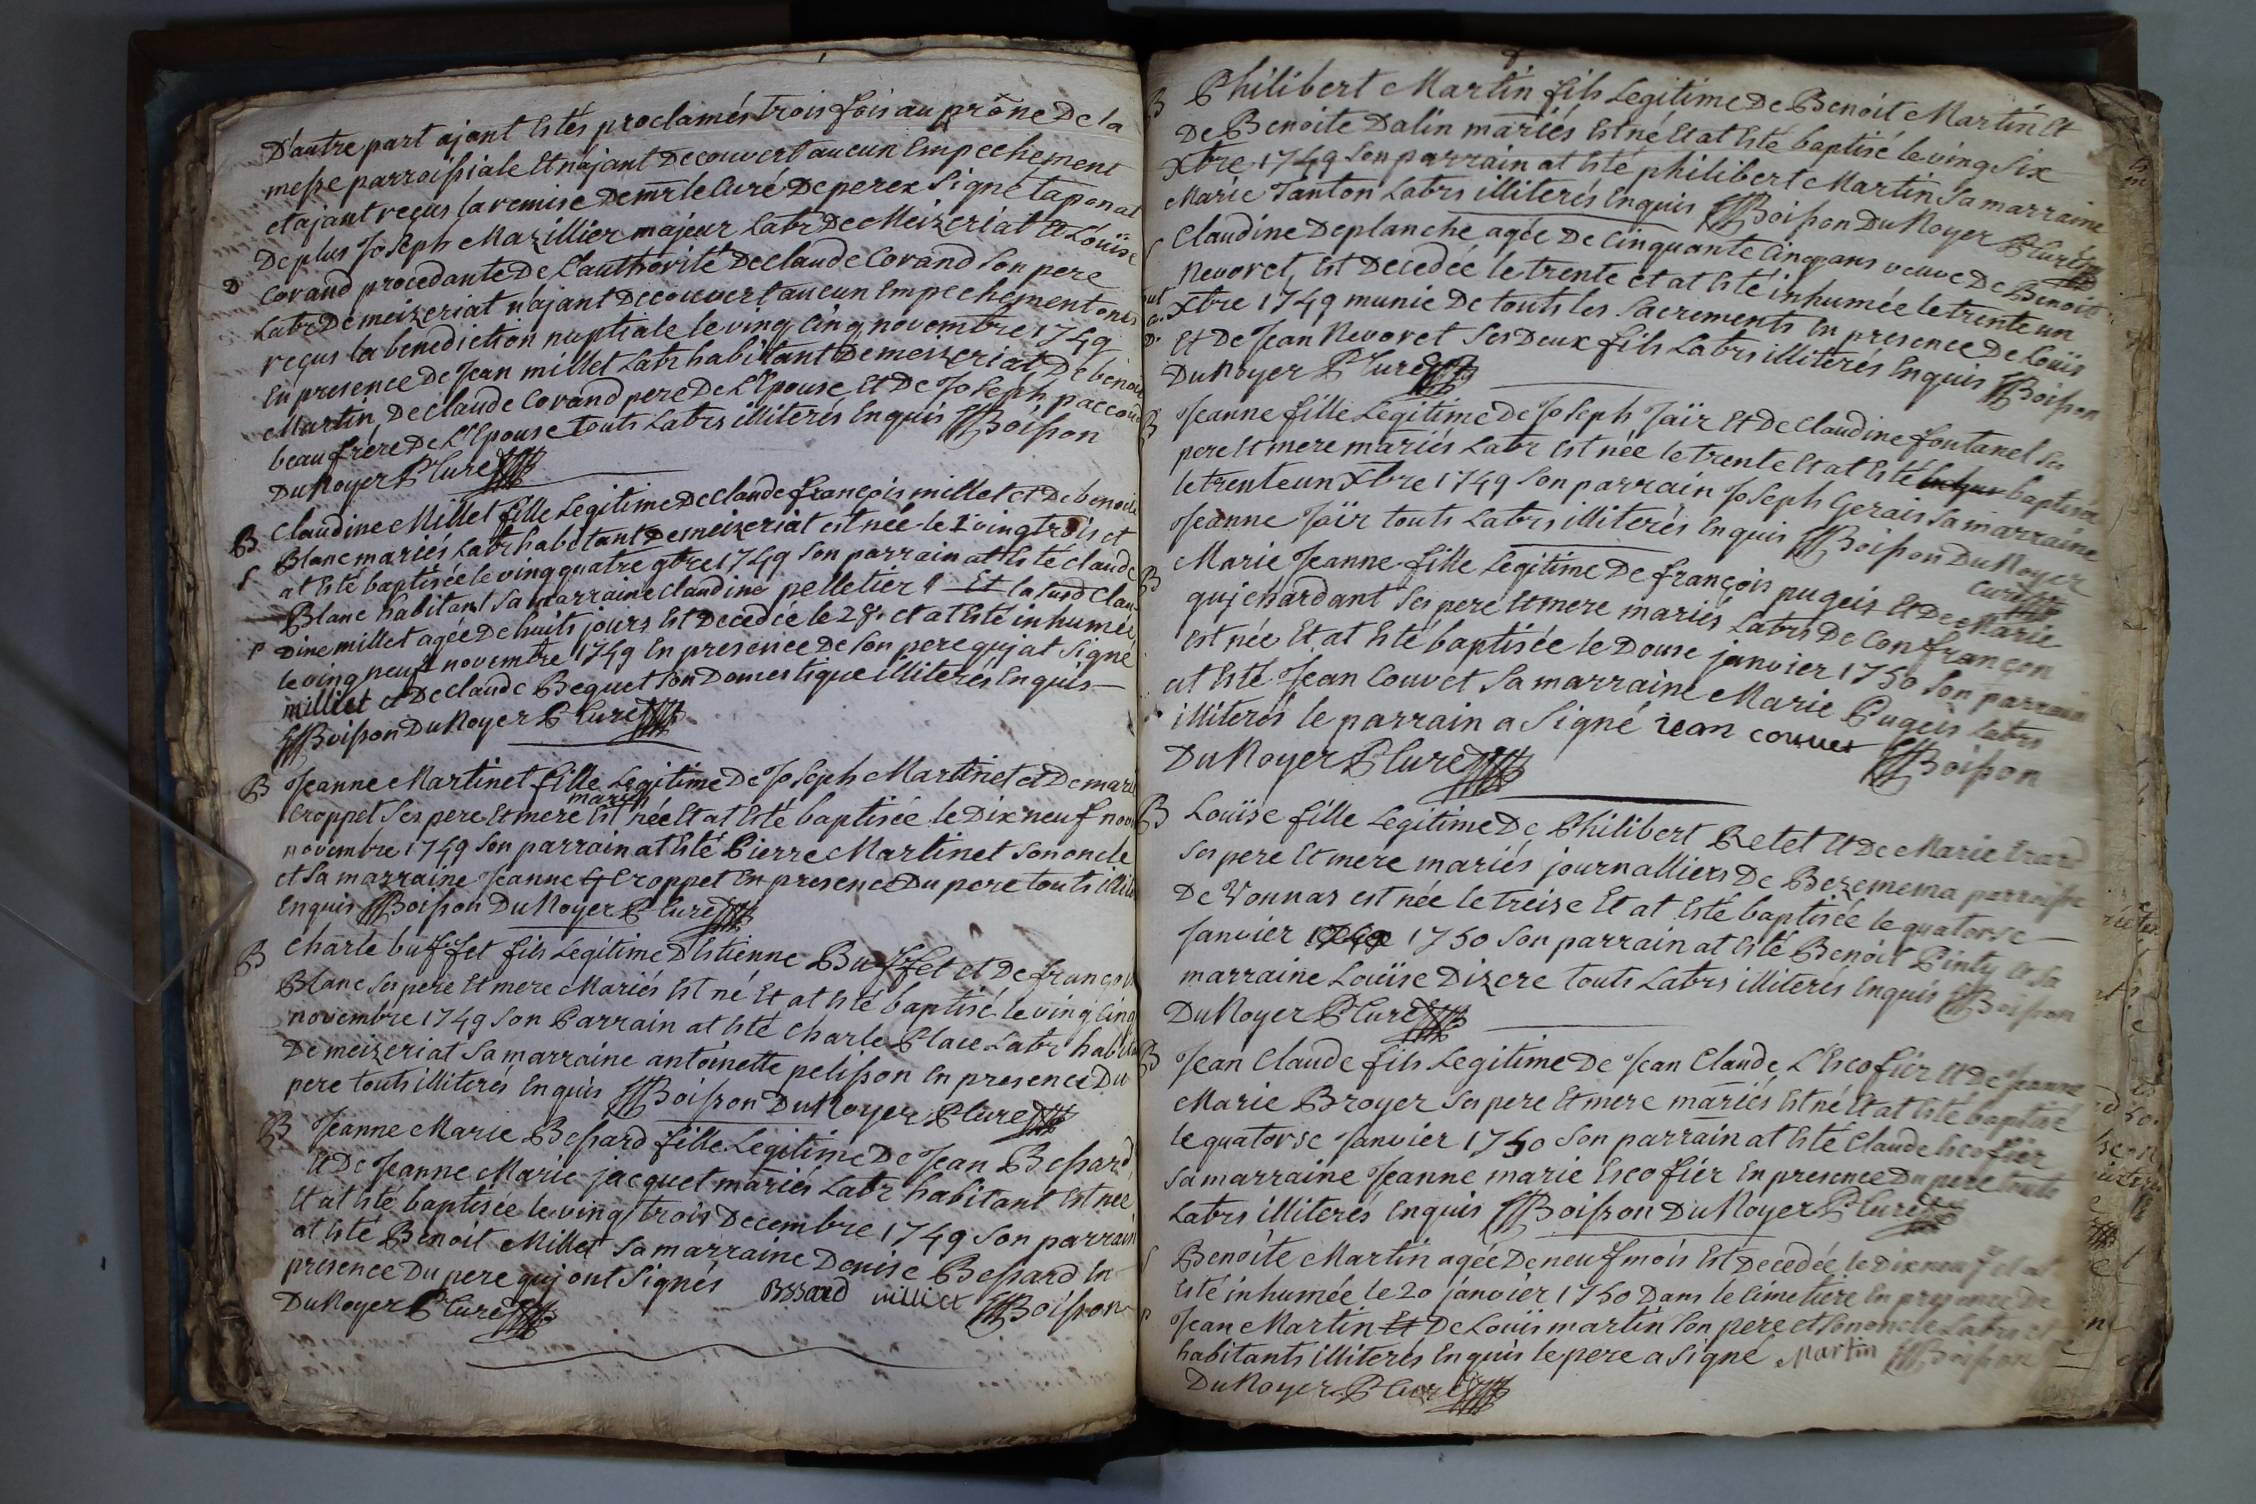 D'autre part ajant Estés proclamés trois fois au prône De la
messe parroissiale Et n'ajant Decouvert aucun Empechement
et ajant reçus la remise De mr le Curé De perex Signé taponat
De plus Joseph Mazillier majeur Labr De Meizeriat Et Loüise
D Corand procedante De L'authorité De claude Corand Son pere
Labr De meizeriat n'ajant Decouvert aucun Empechement ont
reçus la benediction nuptiale le ving Cinq novembre 1749
En presence De Jean millet Labr habitant De meizeriat De benoit
Martin, De claude Corand pere De L'Epouse Et De Joseph paccoud
beaufrére De L'Epouse touts Labrs illiterés Enquis Boisson
DuNoyer Ptre Curé
B Claudine Millet fille Legitime De claude françois millet et De benoite
Blanc mariés Labr habitant De meizeriat est née le ving trois et
S at Esté baptisée le ving quatre 9bre 1749 Son parrain at Esté claude
Blanc habitant Sa marraine Claudine pelletier Et la susd Clau-
P Dine millet agée De huits jours Est Decedée le 28. et at Esté inhumée
le ving neuf novembre 1749 En presence De Son pere quj at Signé
milliet et De claude Bequet Son Domestique illiterés Enquis
Boisson DuNoyer Ptre Curé
B Jeanne Martinet fille Legitime De Joseph Martinet et De marie
mariés
Croppet Ses pere Et mere Est née Et at Esté baptisée le Dix neuf nov
novembre 1749 Son parrain at Esté Pierre Martinet Son oncle
et Sa marraine Jeanne Croppet En presence Du pere touts illit
Enquis Boisson DuNoyer Ptre Curé
B Charle buffet fils Legitime D'Estienne Buffet et De françoise
Blanc Ses pere Et mere Mariés Est né Et at Esté baptisé le ving Cinq
novembre 1749 Son Parrain at Esté Charle Place Labr habitant
De meizeriat Sa marraine antoinette pelisson En presence Du
pere touts illiterés Enquis Boisson DuNoyer Ptre Curé
B Jeanne Marie Bessard fille Legitime De Jean Bessard
Et De Jeanne Marie jacquet mariés Labr habitant Est née
Et at Esté baptisée le ving trois Decembre 1749 Son parrain
at Esté Benoit Millet Sa marraine Denise Bessard En
presence Du pere quj ont Signés Bssard milliet Boisson
DuNoyer Ptre Curé
B Philibert Martin fils Legitime De Benoit Martin Et
De Benoite Dalin mariés Est né Et at Esté baptisé le ving Six
Xbre 1749 Son parrain at Esté philibert Martin Sa marraine
Marie Tanton Labrs illiterés Enquis Boisson DuNoyer Ptre Curé
S Claudine Deplanche agée De Cinquante Cinq ans veuve De Benoit
Nevoret, Est Decedée le trente et at Esté inhumée le trente un
Xbre 1749 munie De touts les Sacrements En presence De Loüis
Et De Jean Nevoret Ses Deux fils Labrs illiterés Enquis Boisson
DuNoyer Ptre Curé
B Jeanne fille Legitime De Joseph Jaïr Et De Claudine fontanel Ses
pere Et mere mariés Labr Est née le trente Et at Esté baptisée
le trente un Xbre 1749 Son parrain Joseph Gerais Sa marraine
Jeanne Jaïr touts Labrs illiterés Enquis Boisson DuNoyer
Curé
B Marie Jeanne fille Legitime De françois pugeis Et De Marie
quichardant Ses pere Et mere mariés Labrs De Confrançon
Est née Et at Esté baptisée le Douse janvier 1750 Son parrain
at Esté Jean Couvet Sa marraine Marie Pugeis Labrs
illiterés le parrain a Signé iean couuet Boisson
DuNoyer Ptre Curé
B Louïse fille Legitime De Philibert Retet Et De Marie Erard
Ses pere Et mere mariés journalliers De Bezemema parroisse
De Vonnas est née le treise Et at Esté baptisée le quatorse
Janvier 1750 Son parrain at Esté Benoit Pinty et Sa
marraine Louïse Dizere touts Labrs illiterés Enquis Boisson
DuNoyer Ptre Curé
B Jean Claude fils Legitime De Jean Claude L'Escofier Et De Jeanne
Marie Broyer Ses pere Et mere mariés Est né Et at Esté baptisé
le quatorse Janvier 1750 Son parrain at Esté Claude Escofier
Sa marraine Jeanne marie Escofier En presence Du pere touts
Labrs illiterés Enquis Boisson DuNoyer Ptre Curé
S Benoite Martin agée De neuf mois Est Decedée le Dix neuf et at
Esté inhumée le 20 janvier 1750 Dans le Cimetiere En presence De
P Jean Martin Et De Loüis martin Son pere et Son oncle Labrs et
habitants illiterés Enquis le pere a Signé Martin Boisson
DuNoyer Ptre Curé